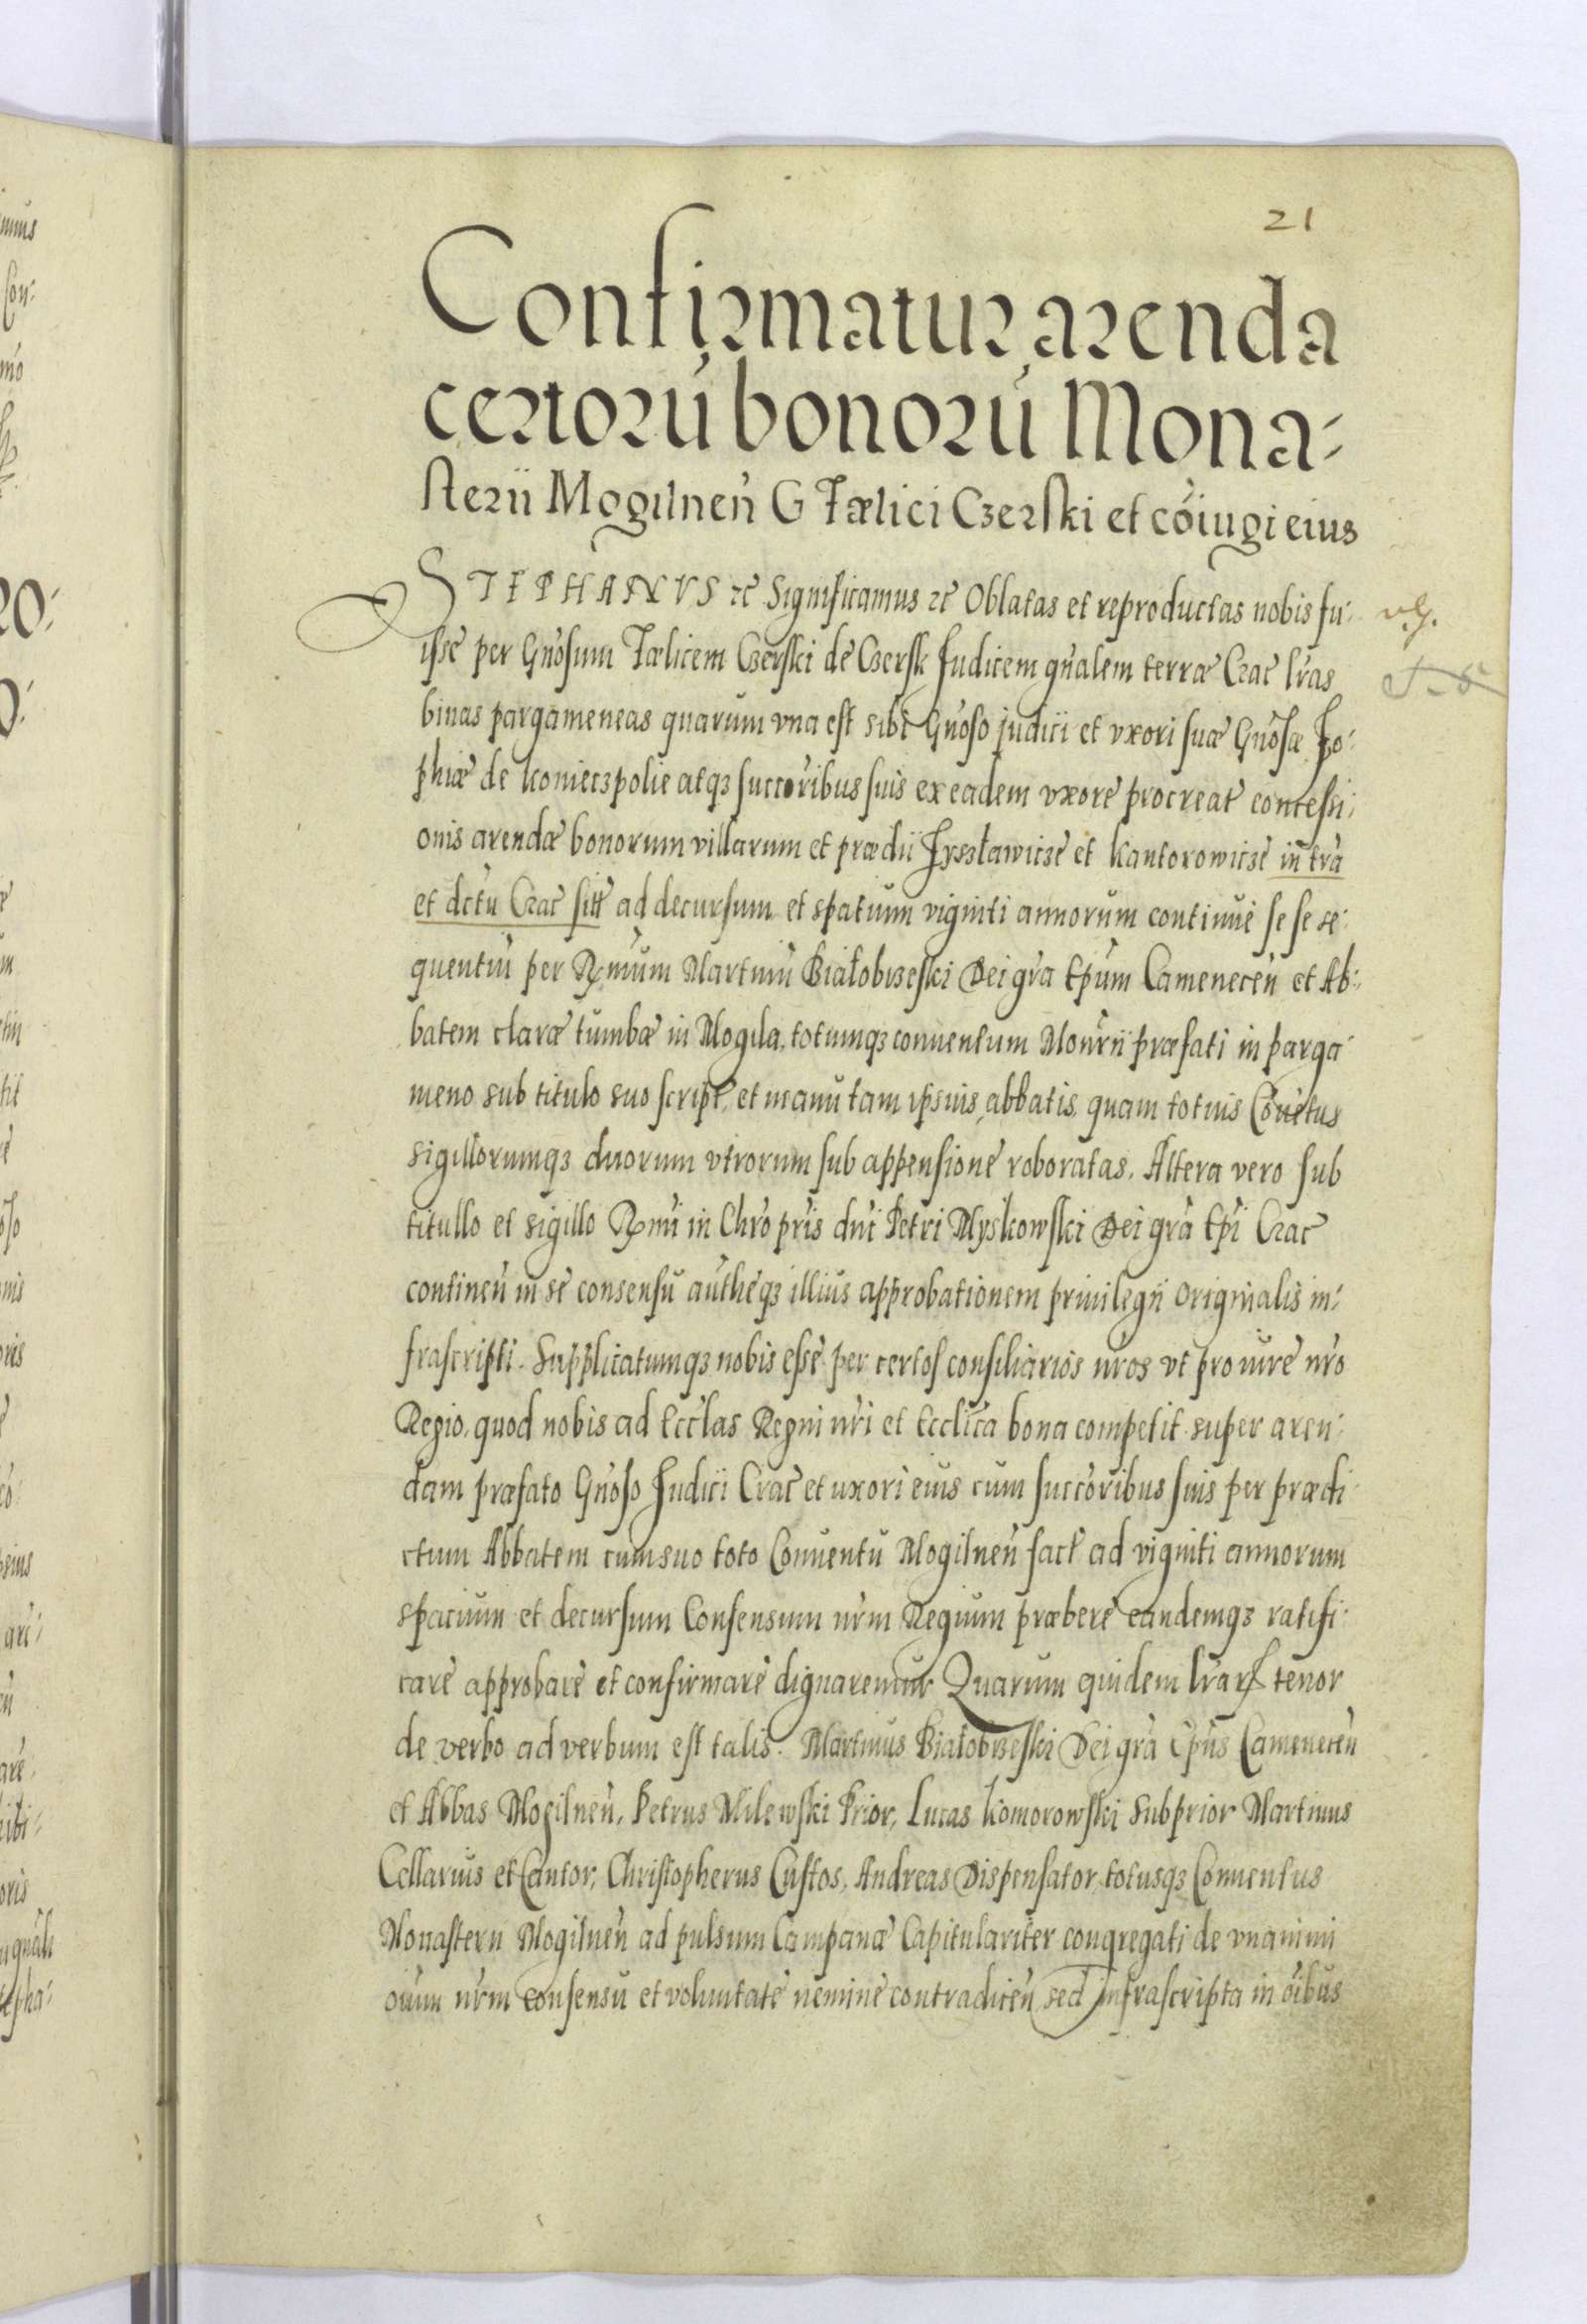 21
Confirmatur arenda
certorū bonorū Mona-
sterii Mogilneñ G Fælici Czerski et cõiugi eius
STEPHANVS etc Significamus etc Oblatas et reproductas nobis fu-
isse per Gñosum Fælicem Czerski de Czersk Iudicem gñalem terræ Crac lr̃as
binas pargameneas quarum vna est sibi Gñoso judici et vxori suæ Gñosæ Zo-
phiæ de Konieczpolie atqз succ̃oribus suis ex eadem vxore procreat concessi-
onis arendæ bonorum villarum et prædii Zyszławicze et Kantorowicze in tr̃a
et dc̃tu Crac sitt ad decursum et spatium viginti annorum continue se se se-
quentiũ per Rm̃um Martinũ Białobrzeski Dei gr̃a Ep̃um Cameneceñ et Ab-
batem claræ tumbæ in Mogila, totumqз conuentum Mon̄rii præfati in parga
meno sub titulo suo script, et manu tam ipsius abbatis, quam totius Cõuẽtus
sigillorumqз duorum vtrorum sub appensione roboratas. Altera vero sub
titullo et sigillo Rm̃i in Chr̃o pr̃is dñi Petri Myskowski Dei gr̃a Ep̃i Crac
contineñ in se consensũ autheqз illius approbationem priuilegii originalis in-
frascripti. Supplicatumqз nobis esse per certos consiliarios nr̃os vt pro iure nr̃o
Regio, quod nobis ad Eccl̃as Regni nr̃i et Eccl̃ica bona competit super aren-
dam præfato Gñoso Iudici Crac et uxori eius cum succ̃oribus suis per prædi
ctum Abbatem cum suo toto Conuentu Mogilneñ fact ad viginti annorum
spacium et decursum Consensum nr̃m Regium præbere eandemqз ratifi-
care approbare et confirmare dignaremur Quarum quidem lr̃arꝝ tenor
de verbo ad verbum est talis. Martinus Białobrzeski Dei gr̃a Ep̃us Cameneceñ
et Abbas Mogilneñ, Petrus Milewski Prior, Lucas Komorowski Subprior Martinus
Cellarius et Cantor, Christopherus Custos, Andreas Dispensator, totusqз Conuentus
Monasterii Mogilneñ ad pulsum Campanæ Capitulariter congregati de vnanimi
oĩum nr̃m consensu et voluntate nemine contradiceñ sed infrascripta in oĩbus